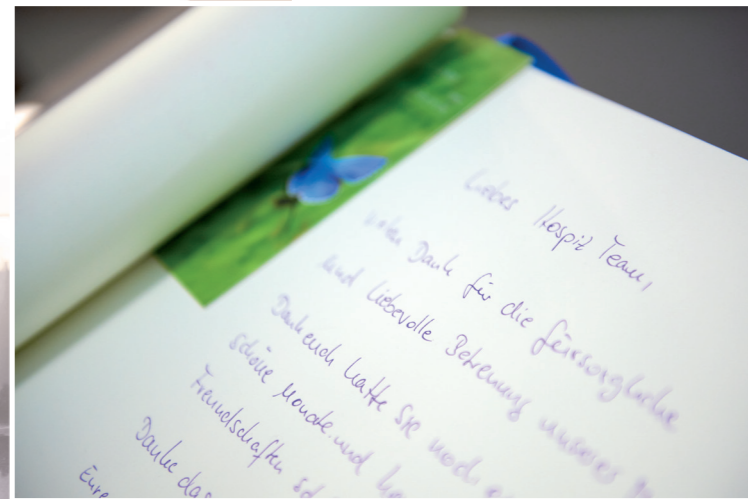 Liebes Hospiz Team,
vielen Dank für die fürsorgliche
und liebevolle Betreuung unseres
Dank euch hatte Sie noch
schöne Monate und
Freundschaften
Danke das
Eure